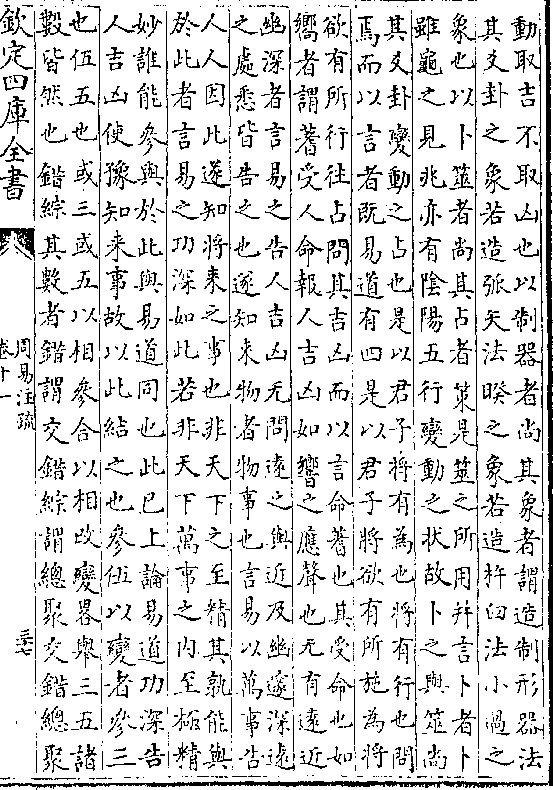 動取吉不取凶也以制器者尚其象者謂造制形器法
其爻卦之象若造弧矢法睽之象若造杵臼法小過之
象也以卜筮者尚其占者策是筮之所用并言卜者卜
雖龜之見兆亦有陰陽五行變動之状故卜之與筮尚
其爻卦變動之占也是以君子將有為也將有行也問
焉而以言者既易道有四是以君子將欲有所施為將
欲有所行往占問其吉凶而以言命蓍也其受命也如
嚮者謂蓍受人命報人吉凶如響之應聲也无有遠近
幽深者言易之告人吉凶无問遠之與近及幽邃深遠
之處悉皆告之也遂知來物者物事也言易以萬事告
人人因此遂知將來之事也非天下之至精其孰能與
於此者言易之功深如此若非天下萬事之内至極精
妙誰能參與於此與易道同也此已上論易道功深告
人吉凶使豫知來事故以此結之也參伍以變者參三
也伍五也或三或五以相參合以相改變畧舉三五諸
數皆然也錯綜其數者錯謂交錯綜謂總聚交錯總聚
欽定四庫全書
周易注疏
卷十一
三七